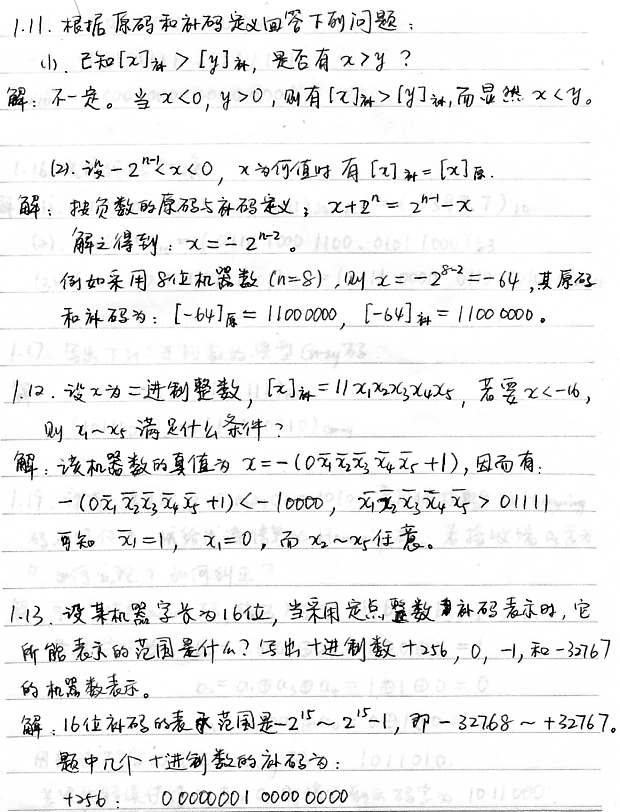 1.11. 根据原码和补码定义回答下列问题：
(1). 已知[x]补 > [y]补, 是否有 x>y ?
解：不一定。当 x<0, y>0, 则有 [x]补>[y]补, 而显然 x<y。
(2). 设 -2ⁿ⁻¹<x<0, x为何值时 有 [x]补=[x]原.
解：按负数的原码与补码定义：x+2ⁿ = 2ⁿ⁻¹-x
解之得到：x = -2ⁿ⁻²。
例如采用8位机器数 (n=8), 则 x = -2⁸⁻² = -64, 其原码
和补码为：[-64]原 = 11000000, [-64]补 = 11000000。
1.12. 设x为二进制整数, [x]补=11x₁x₂x₃x₄x₅, 若要 x<-16,
则 x₁~x₅ 满足什么条件？
解：该机器数的真值为 x=-(0x̄₁x̄₂x̄₃x̄₄x̄₅+1), 因而有：
-(0x̄₁x̄₂x̄₃x̄₄x̄₅+1) < -10000, x̄₁x̄₂x̄₃x̄₄x̄₅ > 01111
可知 x̄₁=1, x₁=0, 而 x₂~x₅任意。
1.13. 设某机器字长为16位, 当采用定点整数补码表示时, 它
所能表示的范围是什么？写出十进制数 +256, 0, -1, 和 -32767
的机器数表示。
解：16位补码的表示范围是-2¹⁵ ~ 2¹⁵-1, 即 -32768 ~ +32767。
题中几个十进制数的补码为：
+256: 00000001 00000000